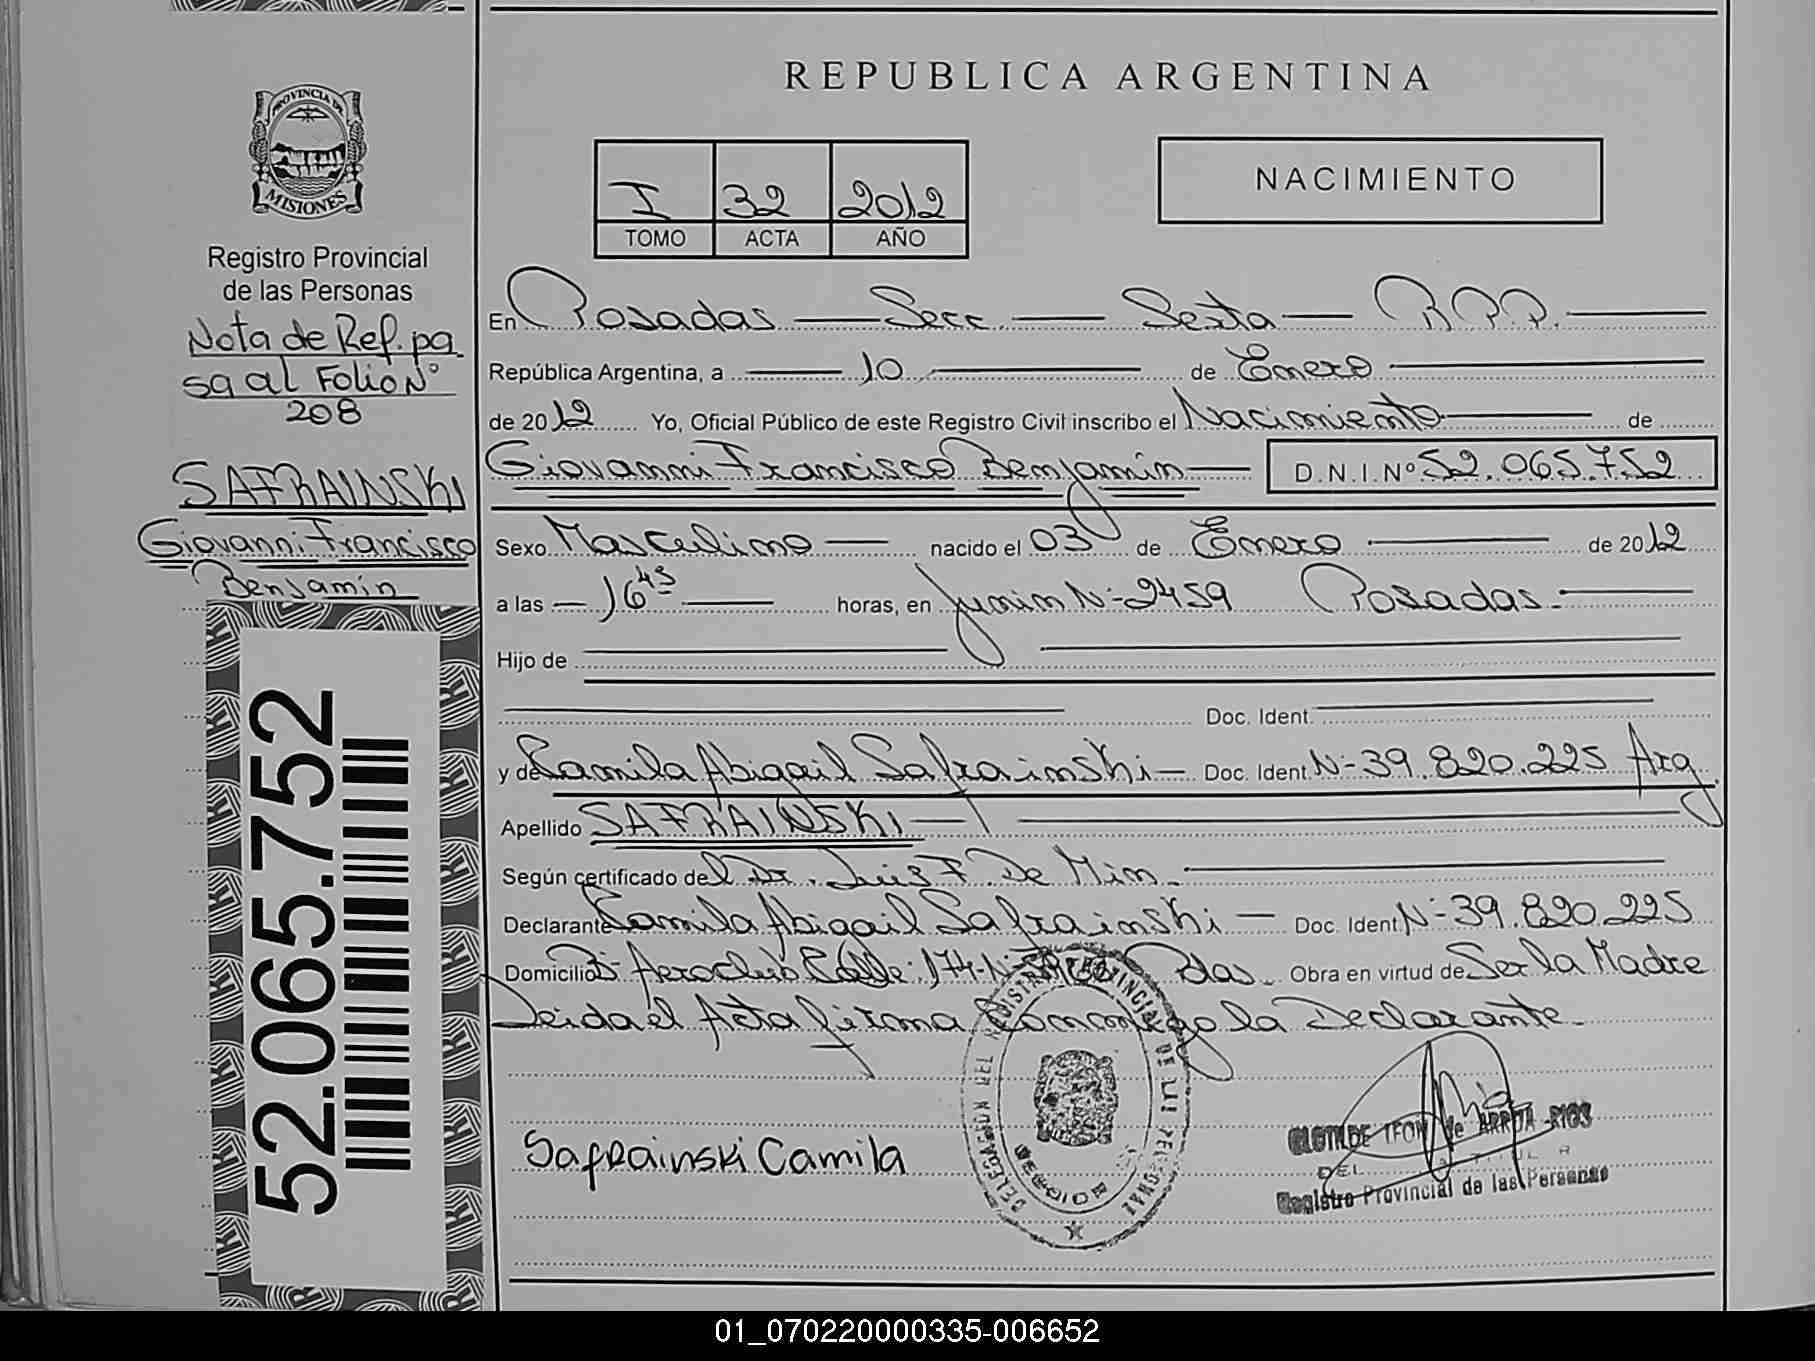 REPUBLICA ARGENTINA
PROVINCIA DE
MISIONES
Registro Provincial
de las Personas
Nota de Ref. pa
sa al Folio N°
208
SAFRAINSKI
Giovanni Francisco
Benjamín
52.065.752
I 32 2012
TOMO ACTA AÑO
NACIMIENTO
En Posadas Secc. Sexta R.P.P.
República Argentina, a 10 de Enero
de 2012 Yo, Oficial Público de este Registro Civil inscribo el Nacimiento de
Giovanni Francisco Benjamín D.N.I.Nº 52.065.752
Sexo Masculino nacido el 03 de Enero de 2012
a las 16 45 horas, en Junin N- 2459 Posadas.
Hijo de
Doc. Ident.
y de Camila Abigail Safrainski Doc. Ident. N- 39.820.225 Arg.
Apellido SAFRAINSKI
Según certificado del Dr. Luis F. De Min.
Declarante Camila Abigail Safrainski Doc. Ident. N- 39.820.225
Domicilio B- Aeroclub Calle: 174- Pdas. Obra en virtud de Ser la Madre
Leida el Acta firma conmigo la Declarante.
Safrainski Camila
DELEGACION DEL REGISTRO PROVINCIAL DE LAS PERSONAS
CLOTILDE de ARRUA RIOS
Registro Provincial de las Personas
01_070220000335-006652